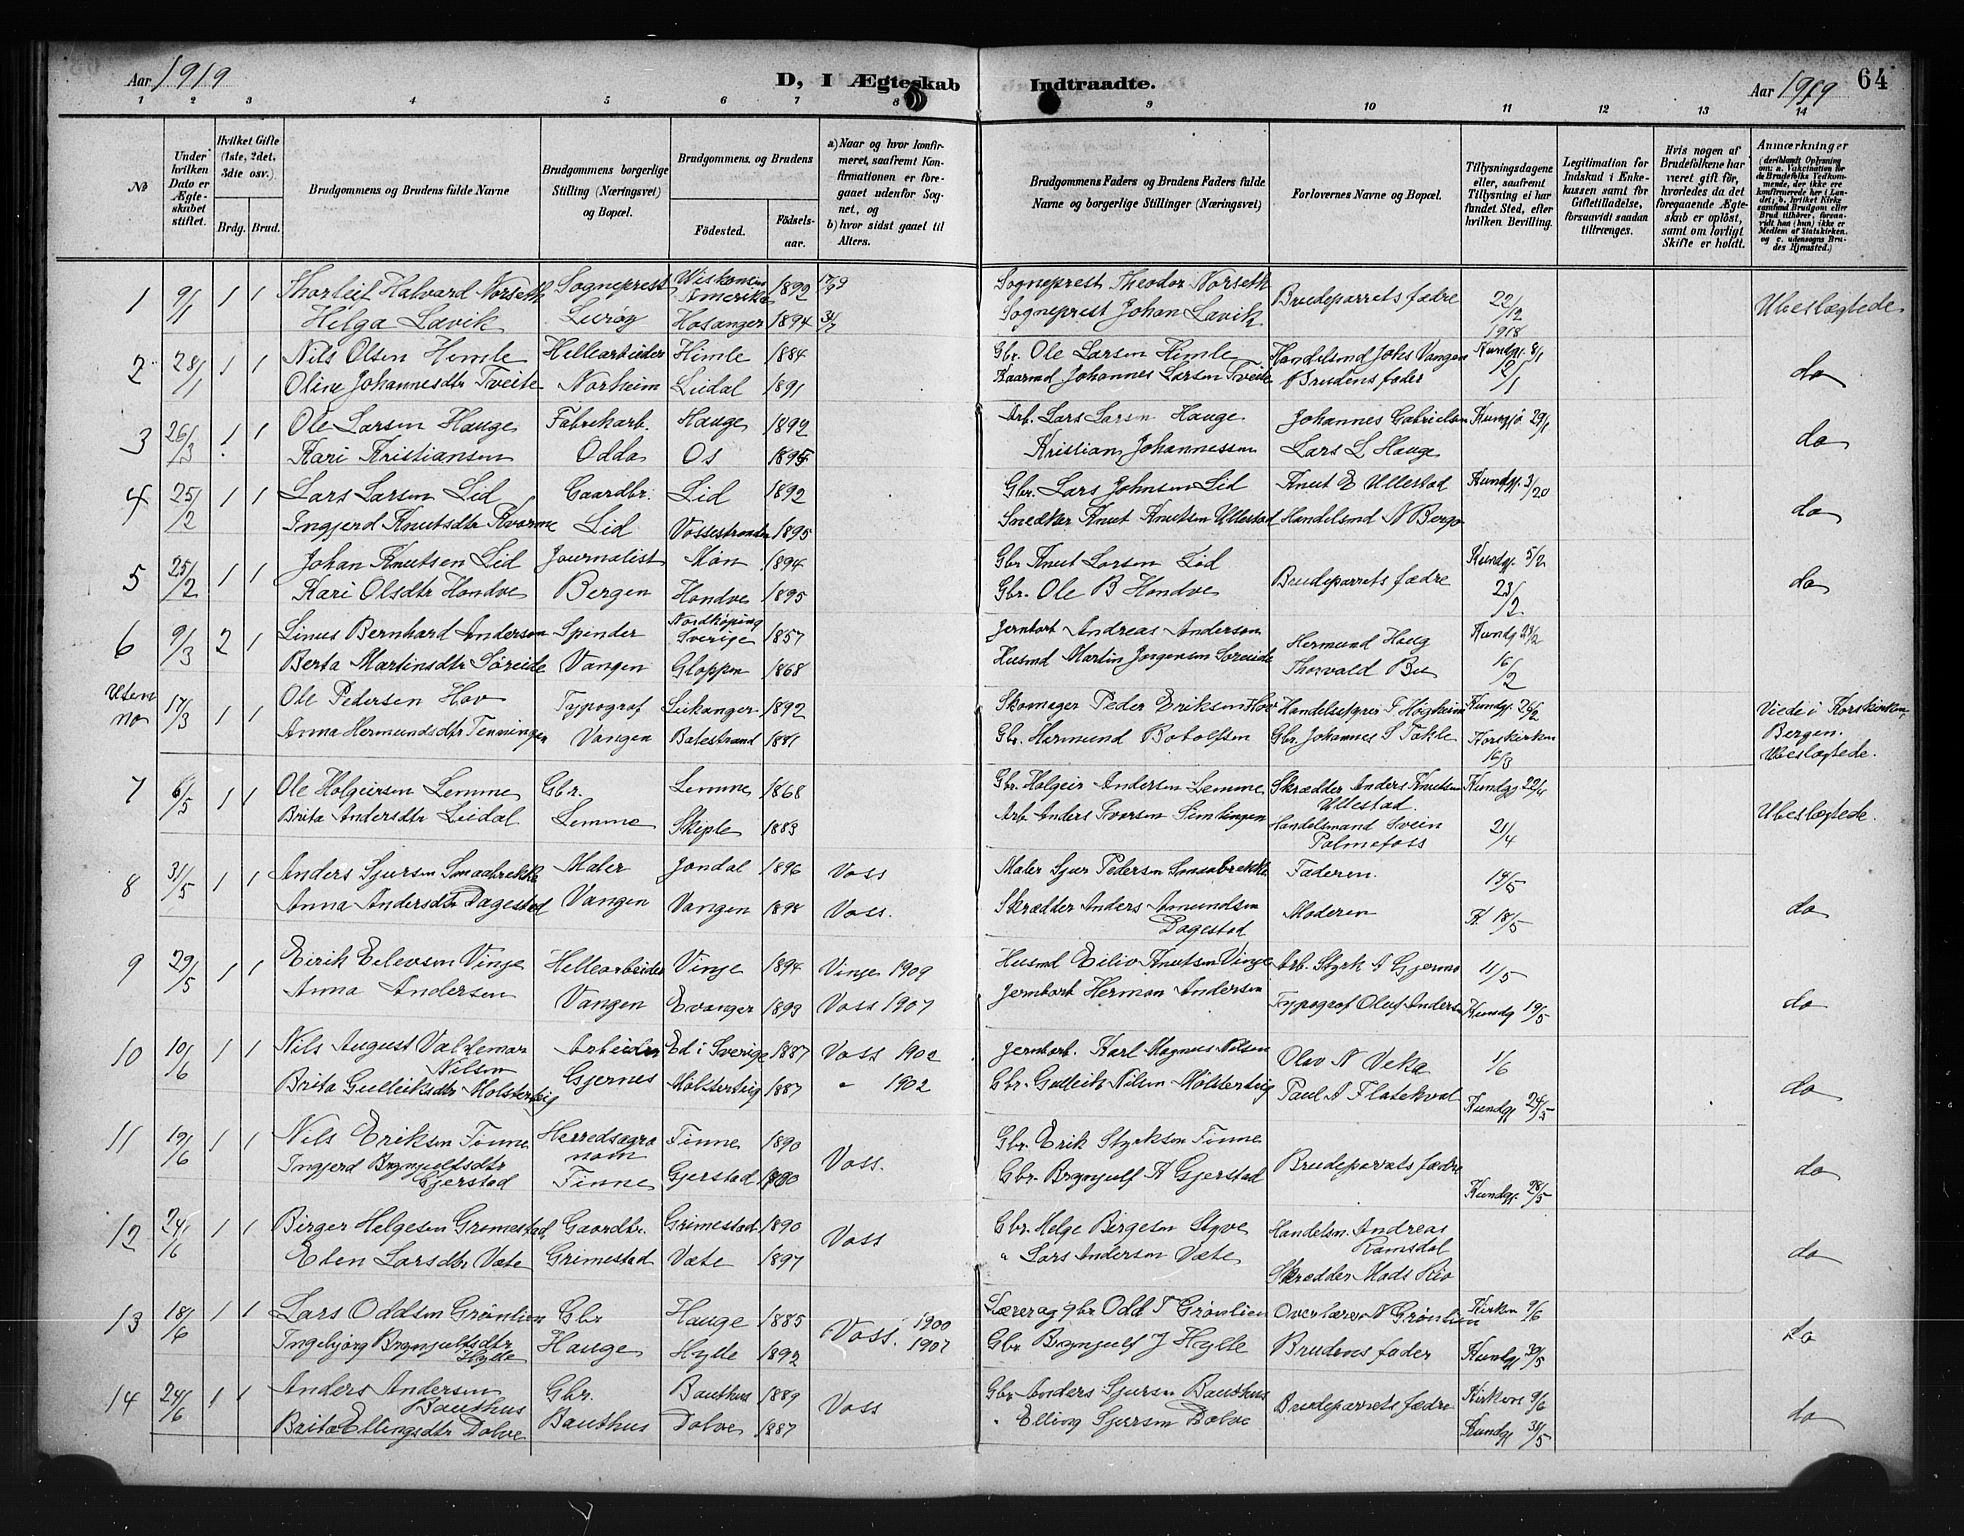 Aar 1919
D, I Ægteskab Indtraadte.
Aar 1919
64
1 2 3 4 5 6 7 8 9 10 11 12 13 14
No
Under hvilken Dato er Ægteskabet stiftet.
Hvilket Gifte (1ste, 2det, 3die osv.)
Brdg. Brud.
Brudgommens og Brudens fulde Navne
Brudgommens borgerlige Stilling (Næringsvei) og Bopæl.
Brudgommens og Brudens
Fødested.
Fødselsaar.
a) Naar og hvor konfirmeret, saafremt Konfirmationen er foregaaet udenfor Sognet, og
b) hvor sidst gaaet til Alters.
Brudgommens Faders og Brudens Faders fulde Navne og borgerlige Stillinger (Næringsvei)
Forlovernes Navne og Bopæl.
Tillysningsdagene eller, saafremt Tillysning ei har fundet Sted, efter hvilken Bevilling.
Legitimation for Indskud i Enkekassen samt for Giftetilladelse, forsaavidt saadan tiltrænges.
Hvis nogen af Brudefolkene har været gift før, hvorledes da det foregaaende Ægteskab er opløst, samt om lovligt Skifte er holdt.
Anmærkninger
(deriblandt Oplysning om: a. Vakcination for de Brudefolks Vedkommende, der ikke ere konfirmerede her i Landet; b. hvilket Kirkesamfund Brudgom eller Brud tilhører, forsaavidt han (hun) ikke er Medlem af Statskirken, og c. udensogns Brudes Hjemsted.)
1 9/1 1 1 Thorleif Halvard Norseth Sogneprest Wiskonsin Amerika 1892 Sogneprest Theodor Norseth Brudeparrets fædre 22/12 1918 Ubeslægtede
Helga Lavik Lurøy Hosanger 1894 Sogneprest Johan Lavik
2 28/1 1 1 Nils Olsen Himle Hellearbeider Himle 1884 Gbr. Ole Larsen Himle Handelsmd Johs Vangen Kundgj. 8/1 do
Oline Johannesdtr Tveite Norheim Lidal 1891 Kaarmd Johannes Larsen Tveite Brudens fader 12/1
3 26/3 1 1 Ole Larsen Hauge Fabrikarb. Hauge 1892 Arb. Lars Larsen Hauge Johannes Gabrielsen 29/1 do
Kari Kristiansen Odda Os 1895 Kristian Johannessen Lars L Hauge
4 25/2 1 1 Lars Larsen Lid Gaardbr. Lid 1892 Gbr. Lars Johnsen Lid Knut E Ullestad Kundgj. do
Ingjerd Knutsdtr Kvarme Lid Vossestranden 1895 Snedker Knut Knutsen Ullestad Handelsmd N Berge
5 25/2 1 1 Johan Knutsen Lid Journalist Møn 1894 Gbr Knut Larsen Lid Brudeparrets fædre Kundgj. 5/2 do
Kari Olsdtr Hondve Bergen Hondve 1895 Gbr. Ole B Hondve 23/2
6 9/3 2 1 Linus Bernhard Anderson Spinder Nordköping Sverige 1857 Jernbarb Andreas Anderson Hermund Haug Kundg
Berta Martinsdtr Søreide Vangen Gloppen 1868 Husmd Martin Jørgensen Søreide Thorvald Bu 16/2
Uten no 17/3 1 1 Ole Pedersen Hov Typograf Leikanger 1892 Skomager Peder Eriksen Hov Handelsstyrer T Høgheim Kundgj. 26/2 Viede i Korskirken, Bergen. Ubeslægtede.
Anna Hermundsdtr Tenningen Vangen Balestrand 1881 Gbr. Hermund Botolfsen Gbr. Johannes S Takle Korskirken 16/3
7 6/5 1 1 Ole Holgeirsen Lemme Gbr. Lemme 1868 Gbr. Holgeir Andersen Lemme Skrædder Anders Knutsen Ullestad. Kundgj 22/4 Ubeslægtede.
Brita Andersdtr Lidal Lemme Skiple 1883 Arb Anders Iversen Handelsmand Svein Palmefoss 21/4
8 31/5 1 1 Anders Sjursen Smaabrekke Maler Jondal 1896 Voss Maler Sjur Pedersen Smaabrekke Faderen. 14/5
Anna Andersdtr Dagestad Vangen Vangen 1898 Voss. Skrædder Anders Amundsen Dagestad Moderen K 18/5 do
9 29/5 1 1 Eirik Eilevsen Vinje Hellearbeider Vinje 1894 Vinje 1909 Husmd Eiliv Knutsen Vinje Arb. Styrk A Gjerme 11/5
Anna Andersen Vangen Evanger 1893 Voss 1907 Jernbarb Herman Andersen Typograf Oluf Andersen Kundg 19/5 do
10 10/6 1 1 Nils August Valdemar Nilsen Arbeider Ed i Sverige 1887 Voss 1902 Jernbarb. Karl Magnus Nilsen Olav N Veka 1/6
Brita Gulleiksdtr Mølstertvig Gjernes Mølstertvig 1887 " 1902 Gbr. Gulleik Nilsen Mølstertvig Paul A Flatekval Kundgj 24/5 do
11 19/6 1 1 Nils Eriksen Finne Herredsagronom Finne 1890 Voss. Gbr. Erik Styrksen Finne Brudeparrets fædre
Ingjerd Brynjulfsdtr Gjerstad Finne Gjerstad 1890 Gbr. Brynjulf A Gjerstad Kundgj. 28/5 do
12 24/6 1 1 Birger Helgesen Grimestad Gaardbr. Grimestad 1890 Voss Gbr. Helge Birgesen Styve Handelsm. Andreas Ramsdal
Eten Larsdtr Væte Grimestad Væte 1897 " Lars Andersen Væte Skrædder Mads Rio do
13 18/6 1 1 Lars Oddsen Grønlien Gbr Hauge 1885 Voss. 1900 Lærer og gbr Odd T Grønlien Overlærer N Grønlien Kirken 9/6
Ingebjørg Brynjulfsdtr Hylle Hauge Hylle 1892 1907 Gbr Brynjulf J Hylle Brudens fader Kundgj 30/5 do
14 24/6 1 1 Anders Andersen Bauthus Gbr. Bauthus 1889 Voss Gbr Anders Sjursen Bauthus Brudeparrets fædre Kirken 9/6
Brita Ellingsdtr Dolve Bauthus Dolve 1887 " Elling Sjursen Dolve Kundgj 30/5 do